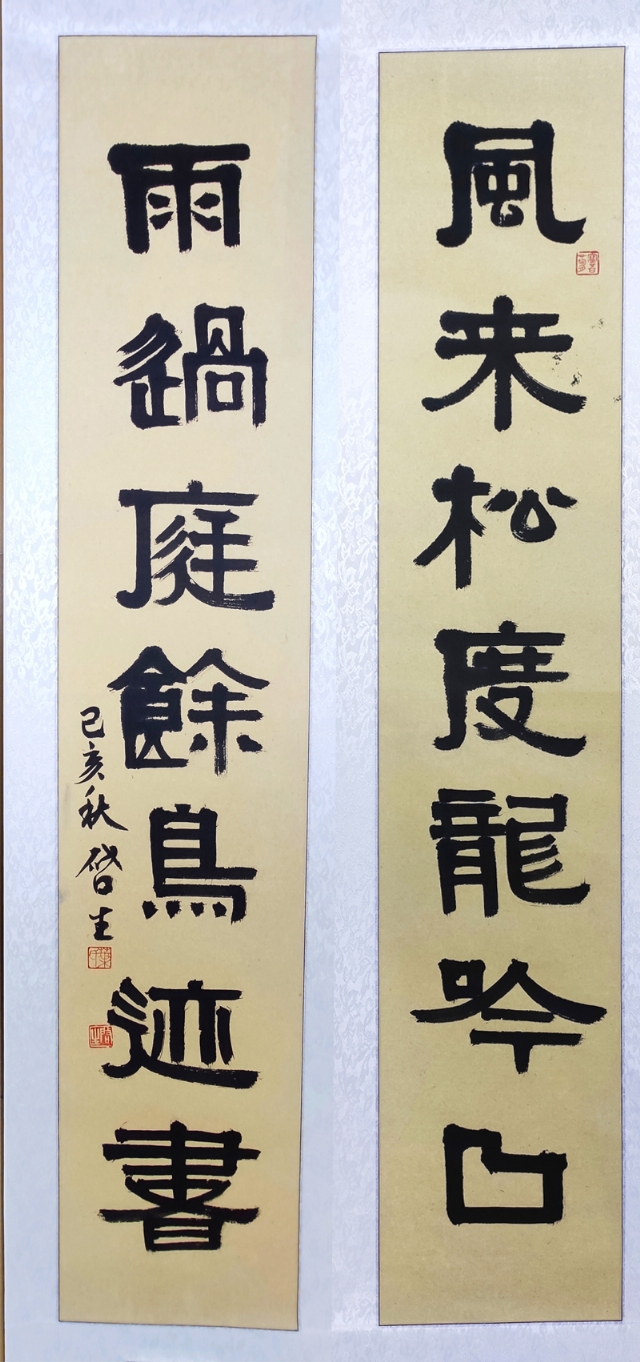 風来松度龍吟曲
雨過庭餘鳥迹書
己亥秋啓生